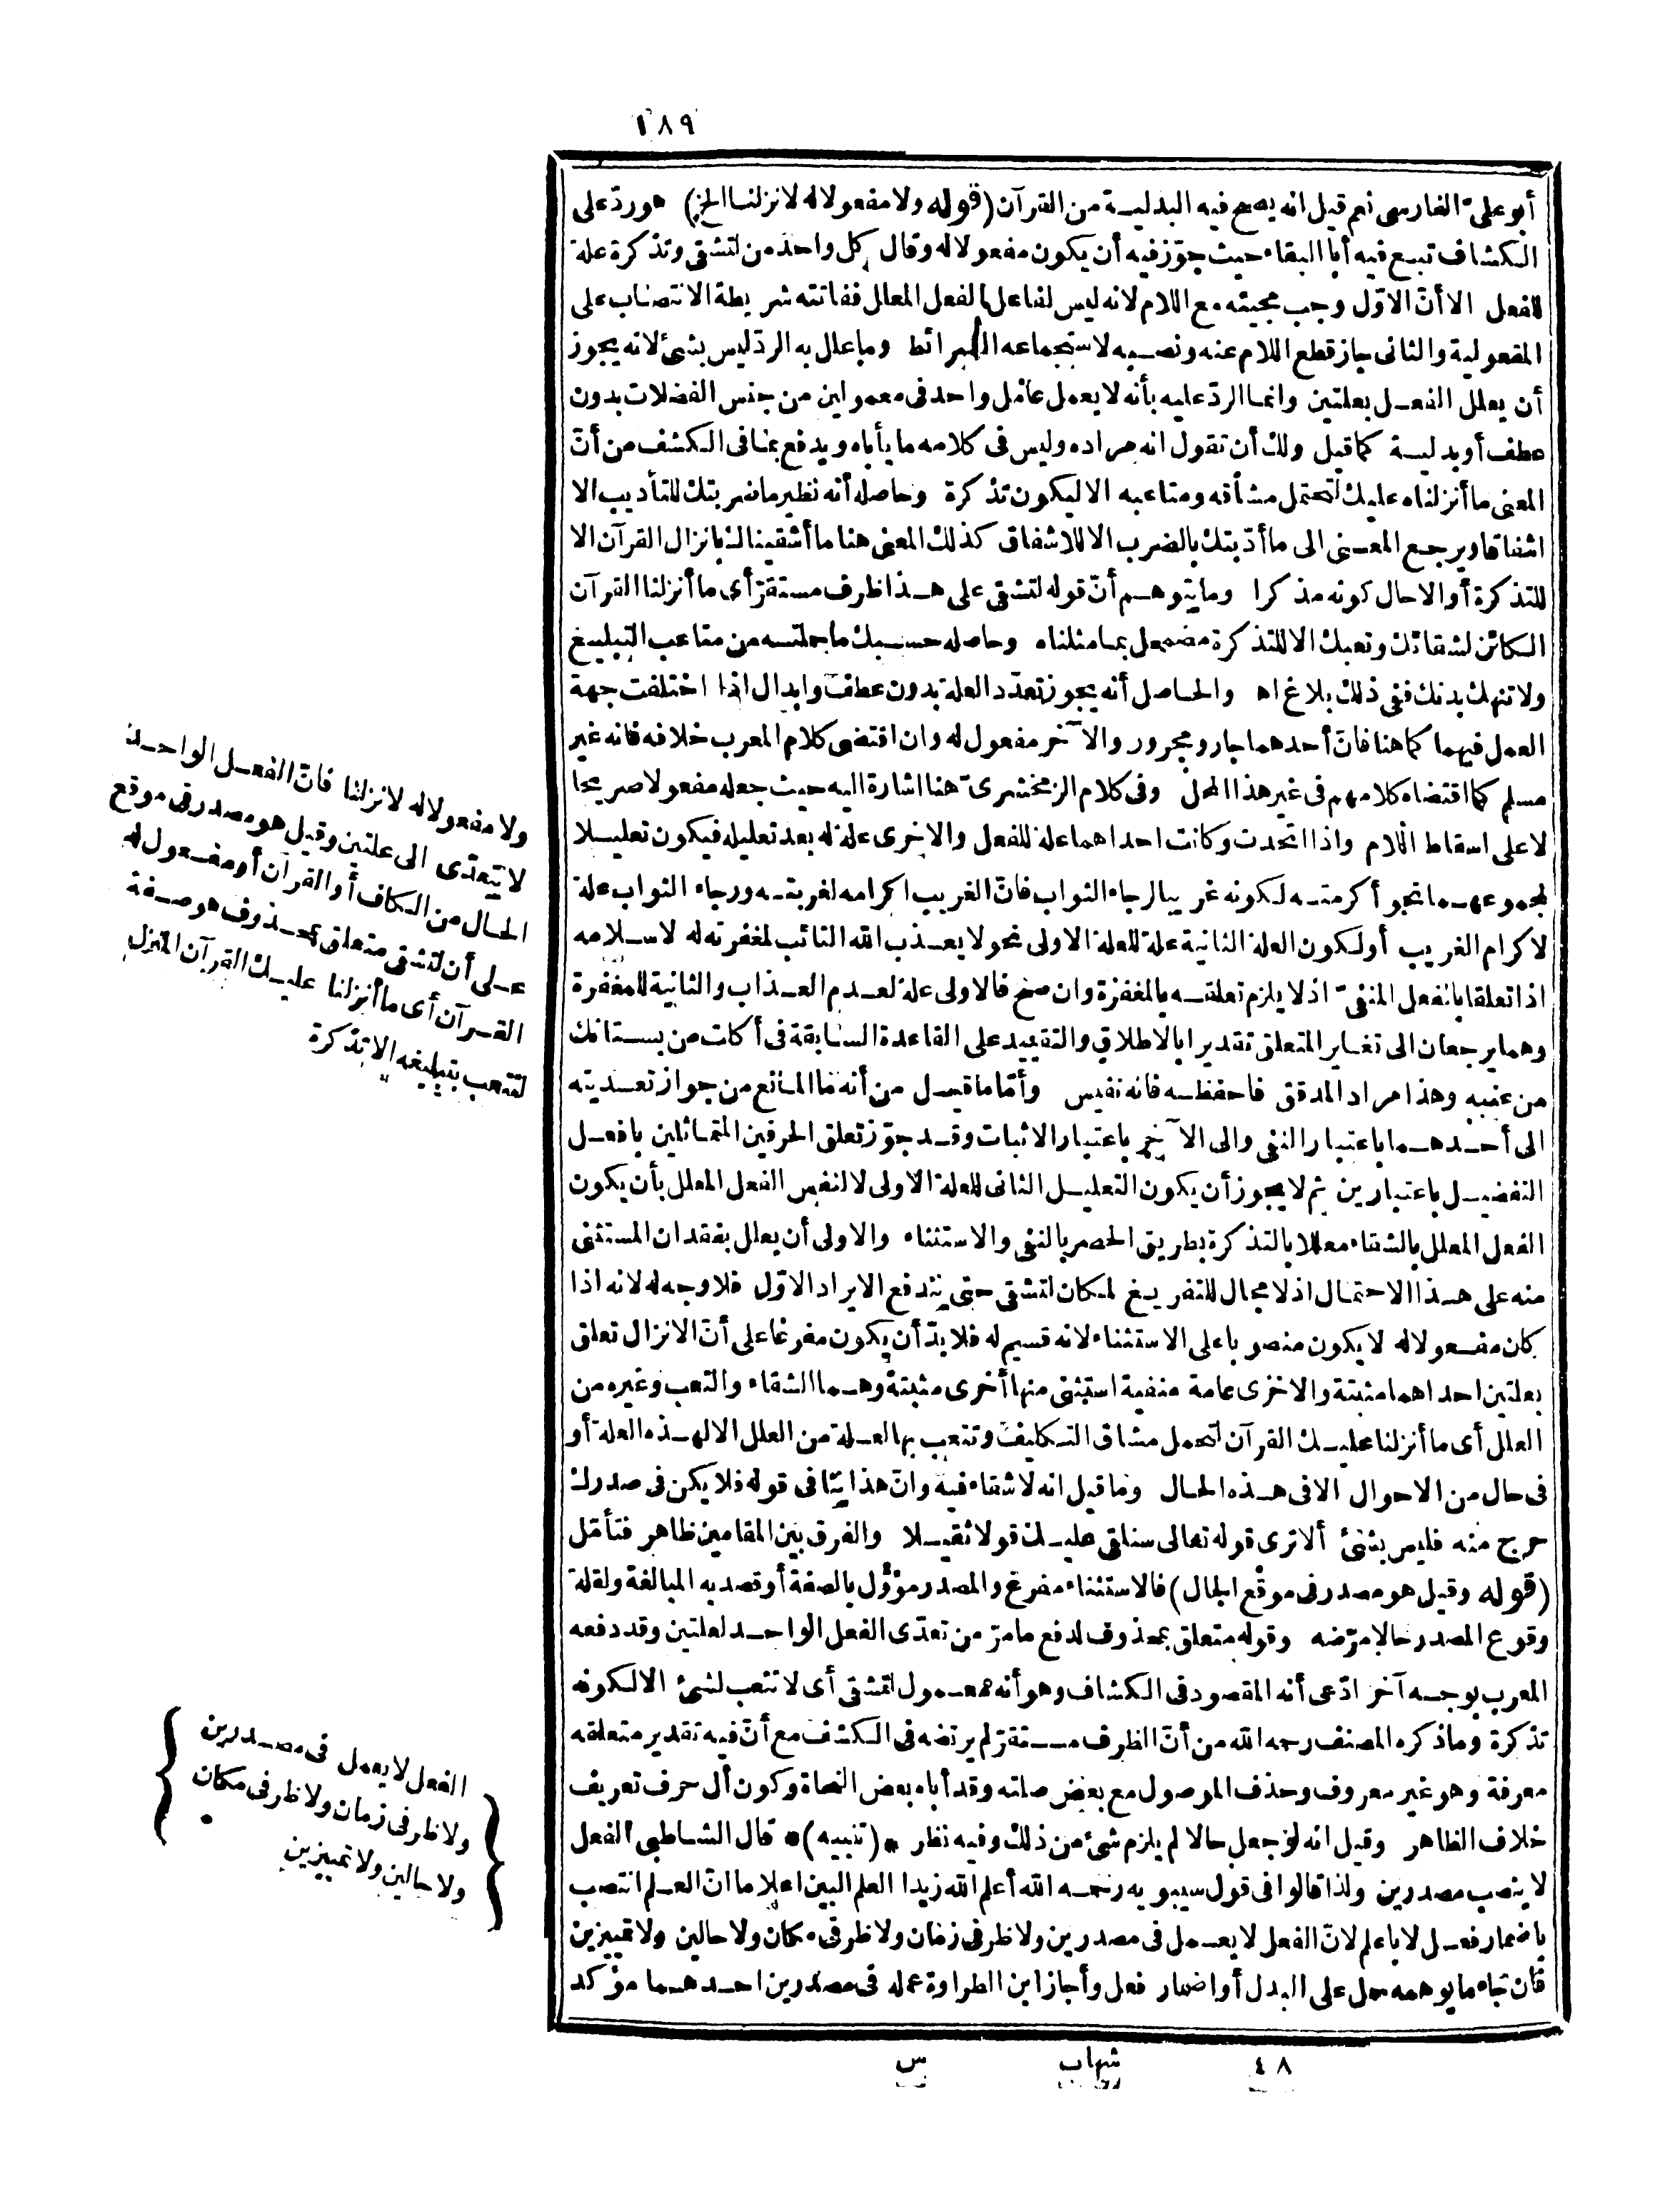 ١٨٩
أبو على الفارسى نعم قيل انه يصح فيه البدلية من القرآن (قوله ولا مفعولا له لانزلنا الخ) هو ردّ على
الكشاف تبع فيه أبا البقاء حيث جوّز فيه أن يكون مفعولا له وقال كل واحد من لتشقى وتذكرة علة
للفعل الا أنّ الاوّل وجب مجيئه مع اللام لانه ليس لفاعل الفعل المعلل ففاتته شريطة الانتصاب على
المفعولية والثانى جاز قطع اللام عنه ونصبه لاستجماعه الشرائط وما علل به الردّ ليس بشئ لانه يجوز
أن يعلل الفعل بعلتين وانما الردّ عليه بأنه لا يعمل عامل واحد فى معمولين من جنس الفضلات بدون
عطف أو بدلية كما قيل ولك أن تقول انه مراده وليس فى كلامه ما يأباه ويدفع بما فى الكشف من أنّ
المعنى ما أنزلناه عليك لتحتمل مشاقه ومتاعبه الا ليكون تذكرة وحاصله أنه نظير ما ضربتك للتأديب الا
اشفاقا ويرجع المعنى الى ما أدّبتك بالضرب الا للاشفاق كذلك المعنى هنا ما أشقيناك بانزال القرآن الا
للتذكرة أو الا حال كونه مذكرا وما يتوهم أنّ قوله لتشقى على هذا ظرف مستقرّ أى ما أنزلنا القرآن
الكائن لشقائك وتعبك الا للتذكرة مضمحل بما مثلناه وحاصله حسبك ما حملته من متاعب التبليغ
ولا تنهك بدنك ففى ذلك بلاغ اه والحاصل أنه يجوز تعدّد العلة بدون عطف وابدال اذا اختلفت جهة
العمل فيهما كما هنا فانّ أحدهما جار ومجرور والآخر مفعول له وان اقتضى كلام المعرب خلافه فانه غير
مسلم كما اقتضاه كلامهم فى غير هذا المحل وفى كلام الزمخشرىّ هنا اشارة اليه حيث جعله مفعولا صريحا
لا على اسقاط اللام واذا اتحدت وكانت احداهما علة للفعل والاخرى علة له بعد تعليله فيكون تعليلا
لمجموعهما نحو أكرمته لكونه غريبا لرجاء الثواب فانّ الغريب اكرامه لغربته ورجاء الثواب علة
لاكرام الغريب أو لكون العلة الثانية علة للعلة الاولى نحو لا يعذب الله التائب لمغفرته له لاسلامه
اذا تعلقا بالفعل المنفىّ اذ لا يلزم تعلقه بالمغفرة وان صح فالاولى علة لعدم العذاب والثانية للمغفرة
وهما يرجعان الى تغاير المتعلق تقديرا بالاطلاق والتقييد على القاعدة السابقة فى أكلت من بستانك
من عنبه وهذا مراد المدقق فاحفظه فانه نفيس وأمّا ما قيل من أنه ما المانع من جواز تعديته
الى أحدهما باعتبار النفى والى الآخر باعتبار الاثبات وقد جوّز تعلق الحرفين المتماثلين بافعل
التفضيل باعتبارين ثم لا يجوز أن يكون التعليل الثانى للعلة الاولى لا لنفس الفعل المعلل بأن يكون
الفعل المعلل بالشقاء معللا بالتذكرة بطريق الحصر بالنفى والاستثناء والاولى أن يعلل بفقدان المستثنى
منه على هذا الاحتمال اذ لا مجال للتفريغ لمكان لتشقى حتى يندفع الايراد الاوّل فلا وجه له لانه اذا
كان مفعولا له لا يكون منصوبا على الاستثناء لانه قسيم له فلا بدّ أن يكون مفرغا على أنّ الانزال تعلق
بعلتين احداهما مثبتة والاخرى عامة منفية استثنى منها أخرى مثبتة وهما الشقاء والتعب وغيره من
العلل أى ما أنزلنا عليك القرآن لتحمل مشاق التكليف وتتعب بها العلة من العلل الا لهذه العلة أو
فى حال من الاحوال الا فى هذه الحال وما قيل انه لا شقاء فيه وانّ هذا ينافى قوله فلا يكن فى صدرك
حرج منه فليس بشئ ألا ترى قوله تعالى سنلقى عليك قولا ثقيلا والفرق بين المقامين ظاهر فتأمّل
(قوله وقيل هو مصدر فى موقع الحال) فالاستثناء مفرغ والمصدر مؤوّل بالصفة أو قصد به المبالغة ولقلة
وقوع المصدر حالا مرّضه وقوله متعلق بمحذوف لدفع ما مرّ من تعدّى الفعل الواحد لعلتين وقد دفعه
المعرب بوجه آخر ادّعى أنه المقصود فى الكشاف وهو أنه معمول لتشقى أى لا تتعب لشئ الا لكونه
تذكرة وما ذكره المصنف رحمه الله من أنّ الظرف مستقرّ لم يرتضه فى الكشف مع أنّ فيه تقدير متعلقه
معرفة وهو غير معروف وحذف الموصول مع بعض صلته وقد أباه بعض النحاة وكون أل حرف تعريف
خلاف الظاهر وقيل انه لو جعل حالا لم يلزم شئ من ذلك وفيه نظر * (تنبيه) * قال الشاطبى الفعل
لا ينصب مصدرين ولذا قالوا فى قول سيبويه رحمه الله أعلم الله زيدا العلم البين اعلاما انّ العلم انتصب
باضمار فعل لا باعلم لانّ الفعل لا يعمل فى مصدرين ولا ظرفى زمان ولا ظرفى مكان ولا حالين ولا تمييزين
فان جاء ما يوهمه حمل على البدل أو اضمار فعل وأجاز ابن الطراوة عمله فى مصدرين احدهما مؤكد
ولا مفعولا له لانزلنا فانّ الفعل الواحد
لا يتعدّى الى علتين وقيل هو مصدر فى موقع
الحال من الكاف أو القرآن أو مفعول له
على أن لتشقى متعلق بمحذوف هو صفة
القرآن أى ما أنزلنا عليك القرآن المنزل
لتتعب بتبليغه الا تذكرة
الفعل لا يعمل فى مصدرين
ولا ظرفى زمان ولا ظرفى مكان
ولا حالين ولا تمييزين
٤٨ شهاب س